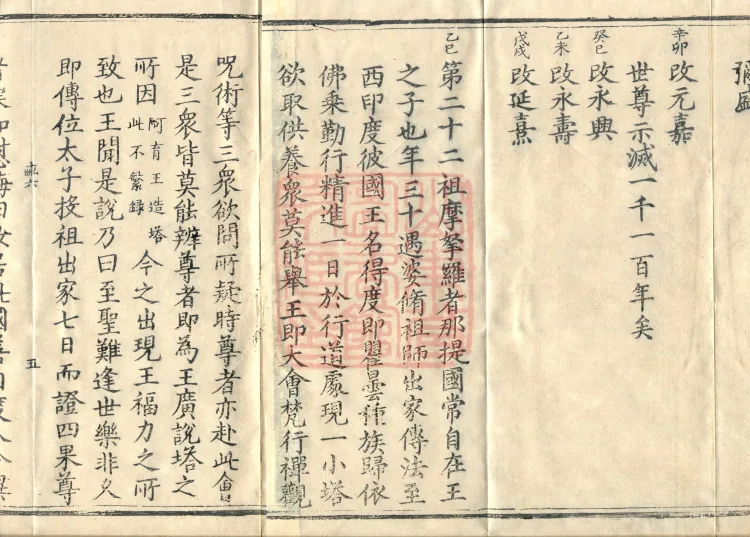 辛卯改元嘉
世尊示滅一千一百年矣
癸巳改永興
乙未改永壽
戊戌改延熹
乙巳第二十二祖摩拏羅者那提國常自在王
之子也年三十遇婆脩祖師出家傳法至
西印度彼國王名得度即瞿曇種族歸依
佛乘勤行精進一日於行道處現一小塔
欲取供養衆莫能舉王即大會梵行禪觀
呪術等三衆欲問所疑時尊者亦赴此會
是三衆皆莫能辨尊者即為王廣說塔之
所因阿育王造塔此不繁錄今之出現王福力之所
致也王聞是說乃曰至聖難逢世樂非久
即傳位太子投祖出家七日而證四果尊
六 五